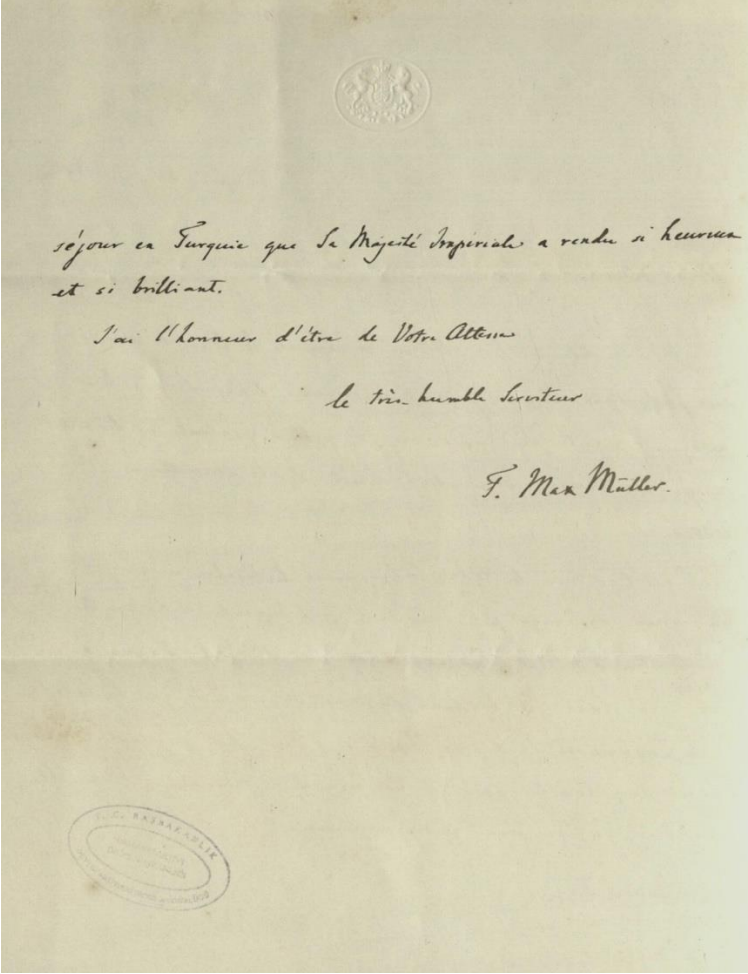 séjour en Turquie que Sa Majesté Impériale a rendu si heureux
et si brilliant.
J'ai l'honneur d'être de Votre Altesse
le très-humble Serviteur
F. Max Müller.
T. C. BAŞBAKANLIK